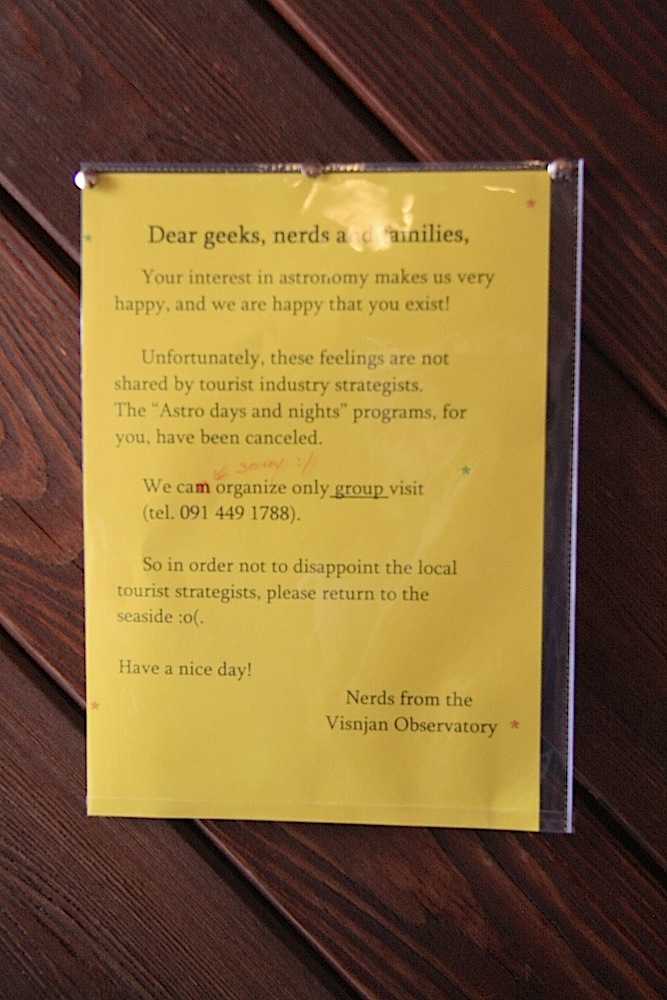 Dear geeks, nerds and families,
Your interest in astronomy makes us very
happy, and we are happy that you exist!
Unfortunately, these feelings are not
shared by tourist industry strategists.
The “Astro days and nights” programs, for
you, have been canceled.
sorry :/
We cam organize only group visit
(tel. 091 449 1788).
So in order not to disappoint the local
tourist strategists, please return to the
seaside :o(.
Have a nice day!
Nerds from the
Visnjan Observatory